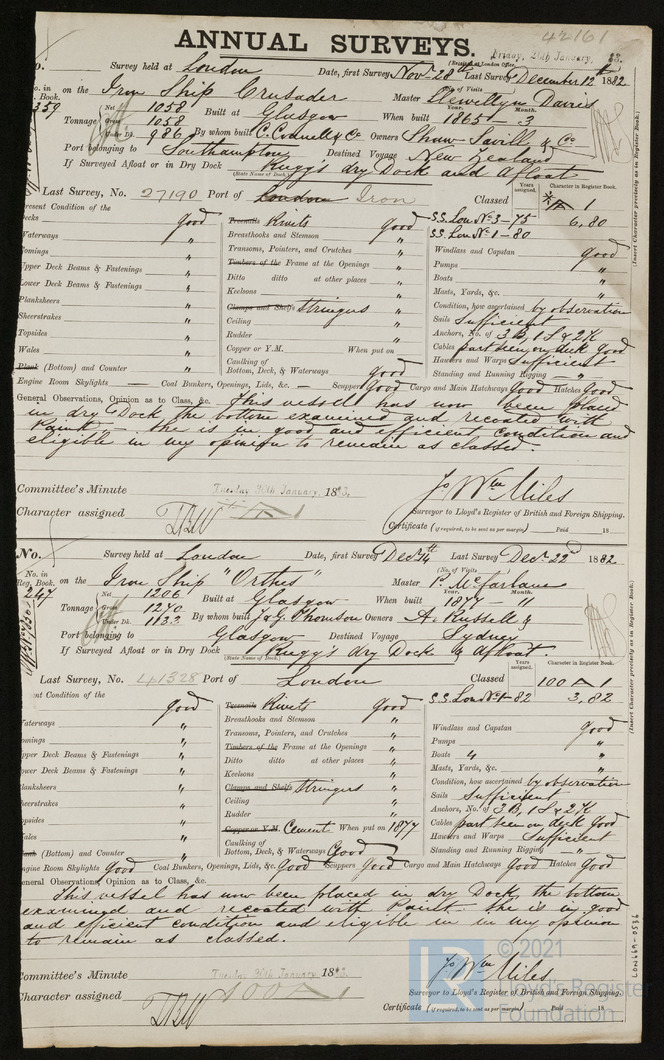 42161
ANNUAL SURVEYS.
Friday, 26th January, 83.
(Received at London Office,
No. Survey held at London Date, first Survey Nov. 28th Last Survey December 12th 1882
(No. of Visits
on the Iron Ship Crusader Master Llewellyn Davis
No. in Reg. Book. 359
Tonnage Net 1058 Built at Glasgow When built Year. 1865 Month. 3
Gross 1058
Under Dk. 986 By whom built C. Connell & Co Owners Shaw Savill & Co
Port belonging to Southampton Destined Voyage New Zealand
If Surveyed Afloat or in Dry Dock Rugg's dry Dock and Afloat
(State Name of Dock.)
Last Survey, No. 27190 Port of London Iron Classed Years assigned. Character in Register Book. A 1
S.S. Lon. No. 3-75 6,80
S.S. Lon. No. 1-80
Present Condition of the
Decks good
Waterways "
Comings "
Upper Deck Beams & Fastenings "
Lower Deck Beams & Fastenings "
Planksheers "
Sheerstrakes "
Topsides "
Wales "
Plank (Bottom) and Counter "
Treenails Rivets good
Breasthooks and Stemson "
Transoms, Pointers, and Crutches "
Timbers of the Frame at the Openings "
Ditto ditto at other places "
Keelsons "
Clamps and Shelfs Stringers "
Ceiling "
Rudder "
Copper or Y.M. When put on
Caulking of Bottom, Deck, & Waterways good
Windlass and Capstan good
Pumps "
Boats "
Masts, Yards, &c. "
Condition, how ascertained by observation
Sails Sufficient
Anchors, No. of 3 B, 1 S & 2 K
Cables part seen on deck good
Hawsers and Warps Sufficient
Standing and Running Rigging "
Engine Room Skylights — Coal Bunkers, Openings, Lids, &c. — Scuppers Good Cargo and Main Hatchways Good Hatches Good
General Observations, Opinion as to Class, &c. This vessel has now been placed
in dry Dock the bottom examined and recoated with
Paint — She is in good and efficient condition and
eligible in my opinion to remain as classed.
Committee's Minute Tuesday 30th January, 1883.
Character assigned A 1
Jo Wm Miles
Surveyor to Lloyd's Register of British and Foreign Shipping.
Certificate (if required, to be sent as per margin) Paid 18
(Insert Character precisely as in Register Book.)
No. Survey held at London Date, first Survey Decr. 14th Last Survey Decr. 22d 1882
(No. of Visits )
on the Iron Ship "Orthes" Master P. McFarlane
No. in Reg. Book. 247
Tonnage Net 1206 Built at Glasgow When built Year. 1877 Month. 11
Gross 1240
Under Dk. 1133 By whom built J & G Thomson Owners A. Russell &
Port belonging to Glasgow Destined Voyage Sydney
If Surveyed Afloat or in Dry Dock Rugg's dry Dock & Afloat
(State Name of Dock.)
Last Survey, No. 41328 Port of London Classed Years assigned. Character in Register Book. 100 A 1
S.S. Lon. No. 1-82 3,82
Present Condition of the
good
Waterways "
Comings "
Upper Deck Beams & Fastenings "
Lower Deck Beams & Fastenings "
Planksheers "
Sheerstrakes "
Topsides "
Wales "
Plank (Bottom) and Counter "
Treenails Rivets good
Breasthooks and Stemson "
Transoms, Pointers, and Crutches "
Timbers of the Frame at the Openings "
Ditto ditto at other places "
Keelsons "
Clamps and Shelfs Stringers "
Ceiling "
Rudder "
Copper or Y.M. Cement When put on 1877
Caulking of Bottom, Deck, & Waterways Good
Windlass and Capstan good
Pumps "
Boats 4 "
Masts, Yards, &c. "
Condition, how ascertained by observation
Sails Sufficient
Anchors, No. of 3 B, 1 S & 2 K
Cables part seen on deck Good
Hawsers and Warps Sufficient
Standing and Running Rigging "
Engine Room Skylights Good Coal Bunkers, Openings, Lids, &c. Good Scuppers Good Cargo and Main Hatchways Good Hatches Good
General Observations, Opinion as to Class, &c.
This vessel has now been placed in dry Dock the bottom
examined and recoated with Paint. She is in good
and efficient condition and eligible in my opinion
to remain as classed.
Committee's Minute Tuesday 30th January, 1883.
Character assigned 100 A 1
Jo Wm Miles
Surveyor to Lloyd's Register of British and Foreign Shipping.
Certificate (if required, to be sent as per margin) Paid 18
(Insert Character precisely as in Register Book.)
LON669-0536
© 2021
Lloyd's Register
Foundation